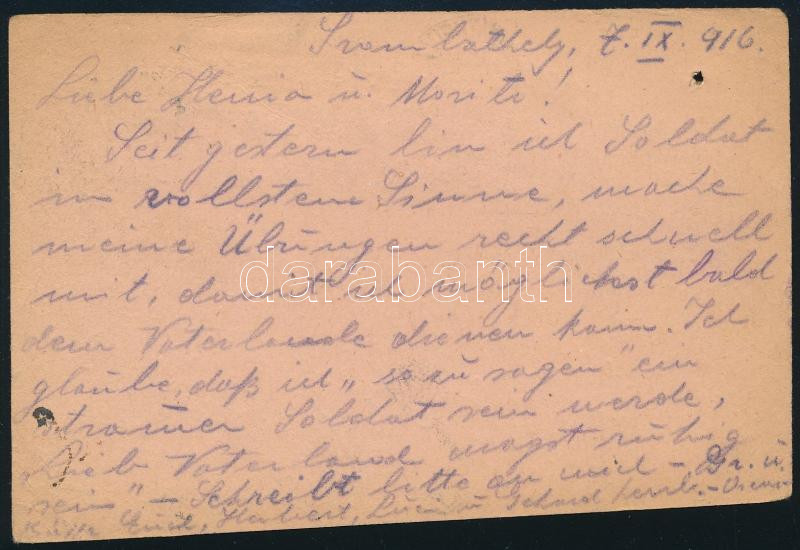 Szombathely, 7. IX. 916.
Liebe Henia u. Moritz!
Seit gestern bin ich Soldat
im vollstem Sinne, mache
meine Übungen recht schnell
mit, damit ich möglichst bald
dem Vaterlande dienen kann. Ich
glaube, daß ich „so zu sagen" ein
stramer Soldat sein werde,
„Lieb Vaterland magst ruhig
sein" – Schreibt bitte an mich – Gr. u.
Küsse Euch, Herbert,
darabanth